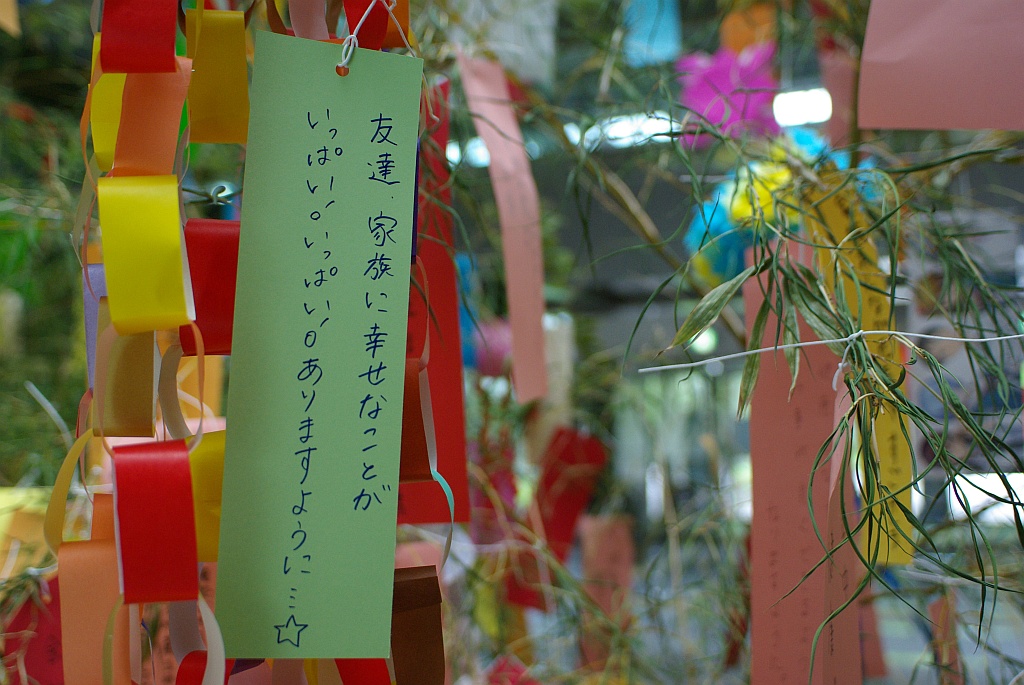 友達、家族に幸せなことが
いっぱい!。いっぱい!。ありますように…☆